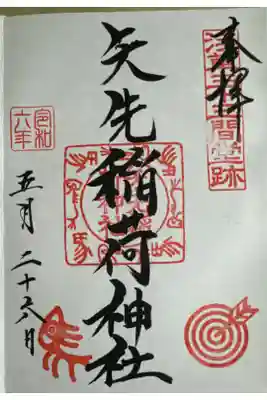 奉拝
浅草三十三間堂跡
矢先稲荷神社
令和
六年
五月二十六日